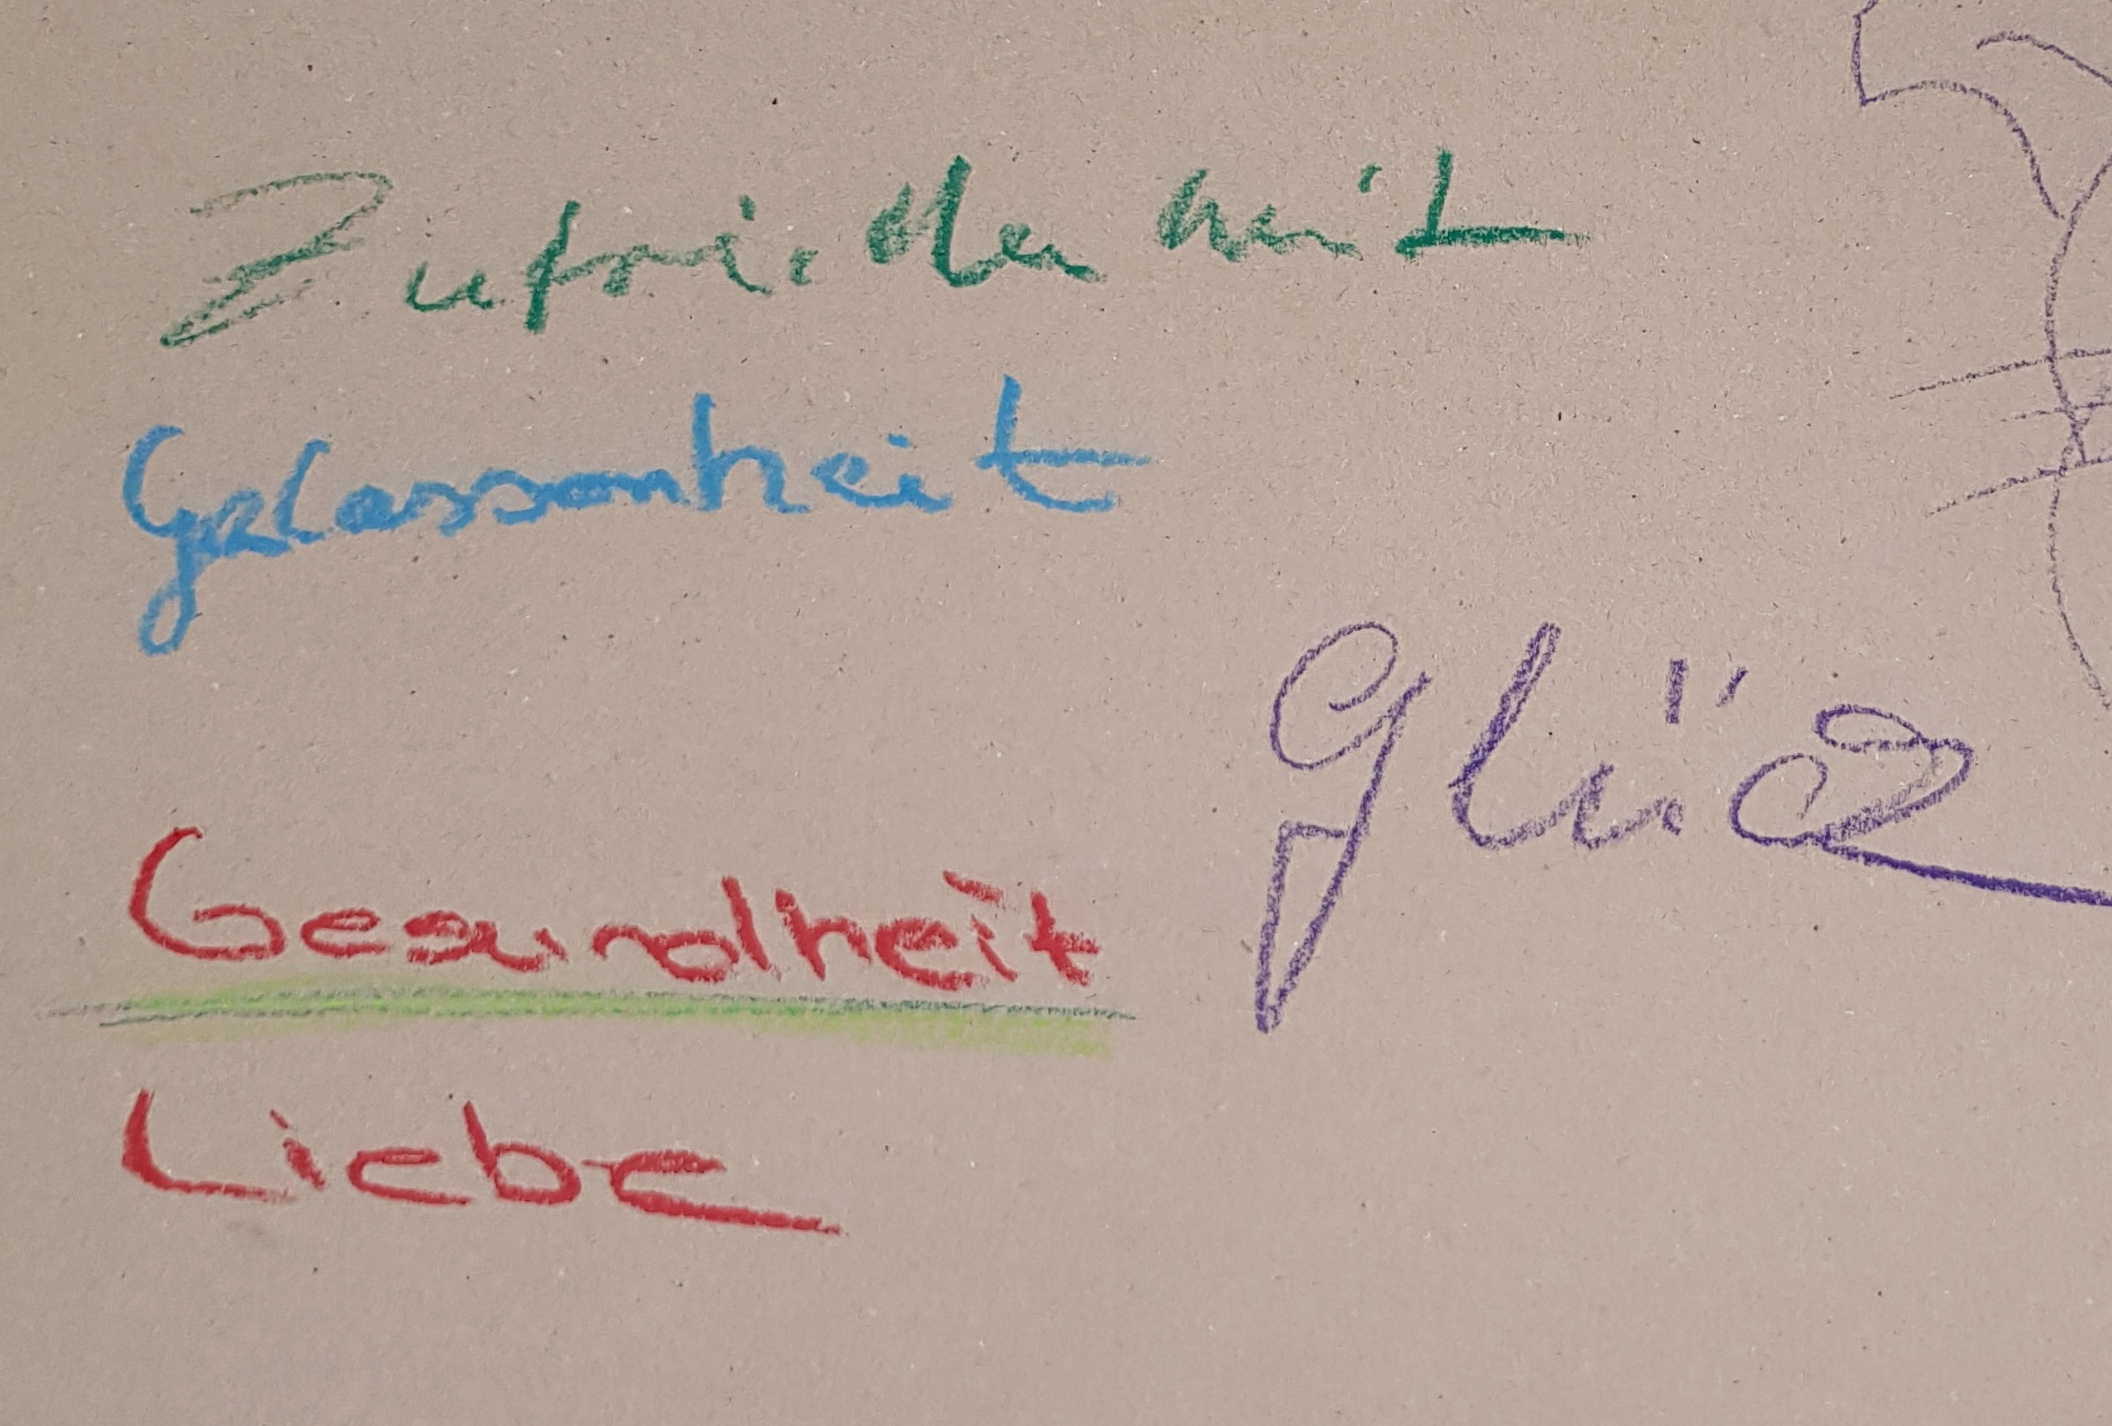 Zufriedenheit
Gelassenheit
Glück
Gesundheit
Liebe